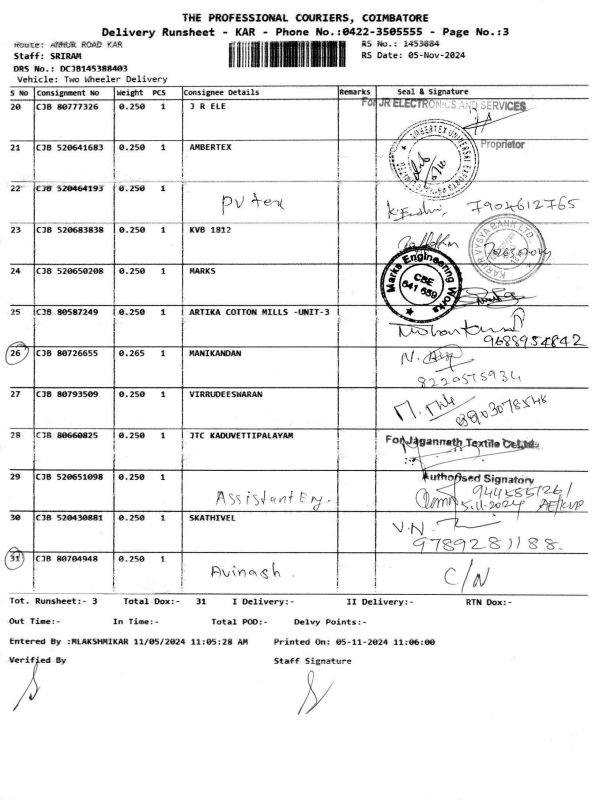 THE PROFESSIONAL COURIERS, COIMBATORE
Delivery Runsheet - KAR - Phone No.:0422-3505555 - Page No.:3
Route: ANNUR ROAD KAR
RS No.: 1453884
Staff: SRIRAM
RS Date: 05-Nov-2024
DRS No.: DCJB145388403
Vehicle: Two Wheeler Delivery
S No Consignment No Weight PCS Consignee Details Remarks Seal & Signature
20 CJB 80777326 0.250 1 J R ELE
For JR ELECTRONICS AND SERVICES
Proprietor
21 CJB 520641683 0.250 1 AMBERTEX
22 CJB 520464193 0.250 1 PV tex 7904612765
23 CJB 520683838 0.250 1 KVB 1812
KARUR VYSYA BANK LTD
24 CJB 520650208 0.250 1 MARKS
Marks Engineering Works
CBE
641 659
25 CJB 80587249 0.250 1 ARTIKA COTTON MILLS -UNIT-3
9688954842
26 CJB 80726655 0.265 1 MANIKANDAN
8220575934
27 CJB 80793509 0.250 1 VIRRUDEESWARAN
28 CJB 80660825 0.250 1 JTC KADUVETTIPALAYAM
For Jagannath Textile Co Ltd.
Authorised Signatory
29 CJB 520651098 0.250 1 Assistant Eng.
5.11.2024 AE/KVP
30 CJB 520430881 0.250 1 SKATHIVEL V.N
9789281188.
31 CJB 80704948 0.250 1 Avinash. C/N
Tot. Runsheet:- 3 Total Dox:- 31 I Delivery:- II Delivery:- RTN Dox:-
Out Time:- In Time:- Total POD:- Delvy Points:-
Entered By :MLAKSHMIKAR 11/05/2024 11:05:28 AM Printed On: 05-11-2024 11:06:00
Verified By Staff Signature